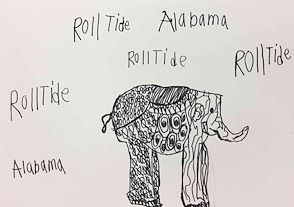 Roll Tide Alabama
Roll Tide
Roll Tide
Roll Tide
Alabama